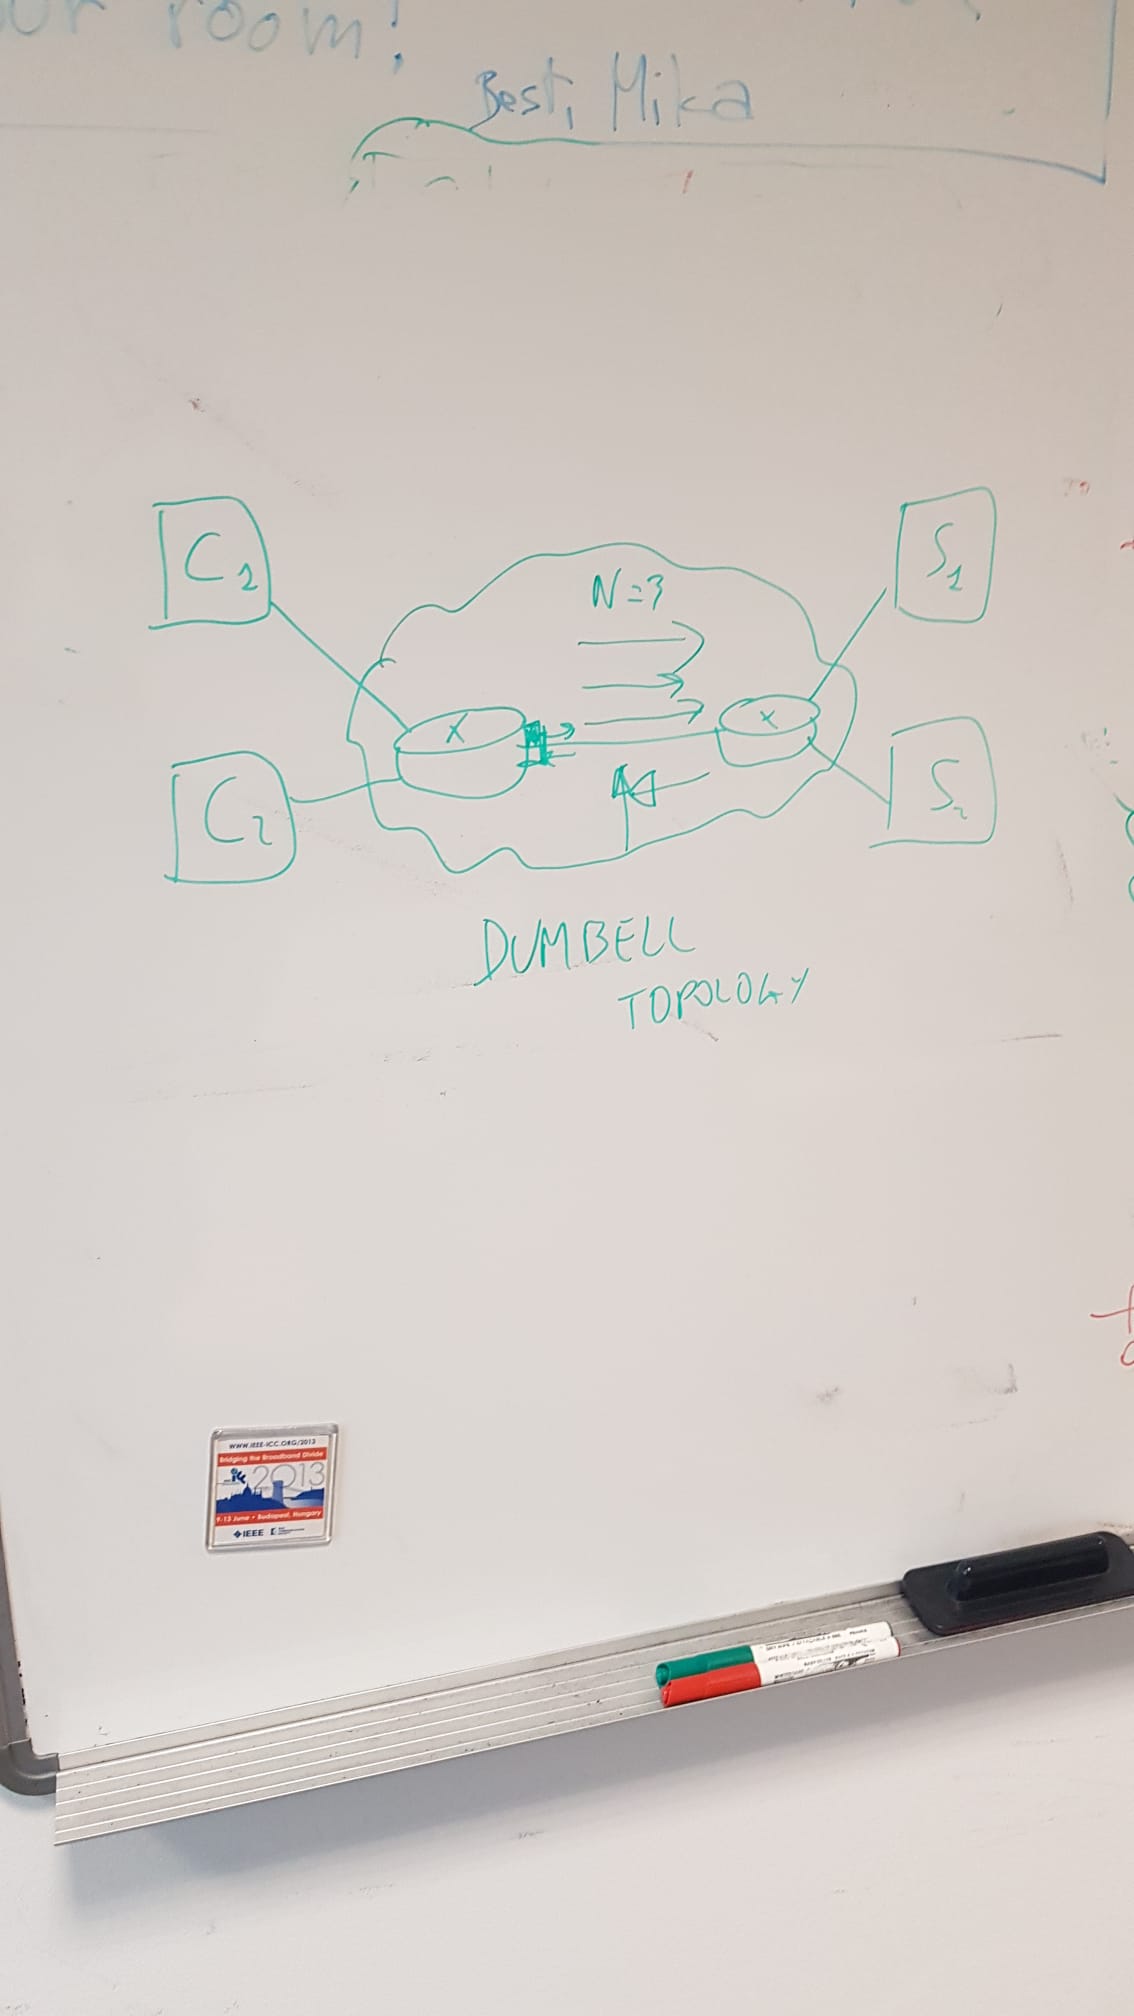 our room!
Best, Mika
C2
S1
N=3
X
X
C2
S2
DUMBELL
TOPOLOGY
WWW.IEEE-ICC.ORG/2013
Bridging the Broadband Divide
2013
9-13 June • Budapest, Hungary
IEEE